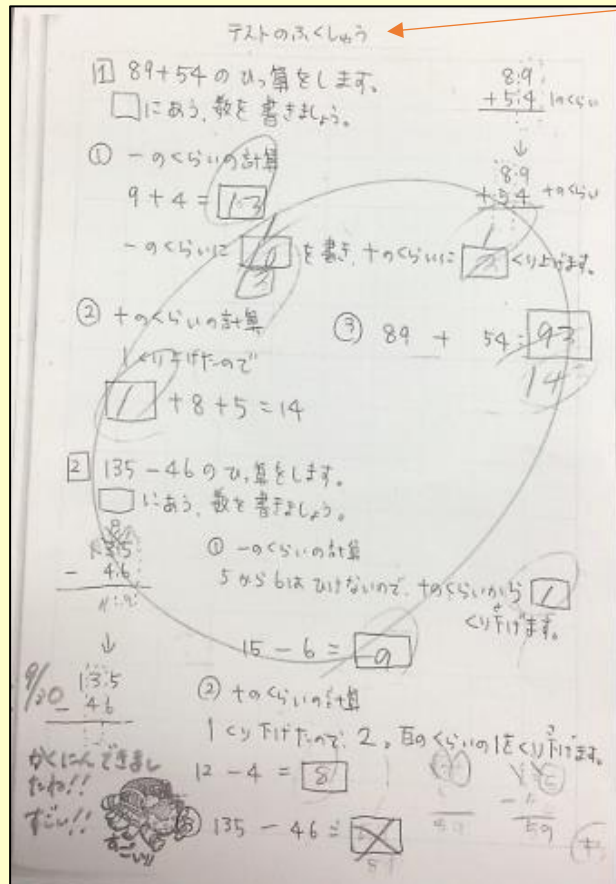 テストのふくしゅう
1 89+54 のひっ算をします。
□にあう、数を書きましょう。
8 9
+ 5 4 一のくらい
↓
8 9
+ 5 4 十のくらい
① 一のくらいの計算
9 + 4 = 13
一のくらいに 3 を書き、十のくらいに 1 くり上げます。
② 十のくらいの計算
1くり上げたので
1 + 8 + 5 = 14
③ 89 + 54 = 93
14
2 135 - 46 のひっ算をします。
□にあう、数を書きましょう。
135
- 46
↓
135
- 46
① 一のくらいの計算
5から6はひけないので、十のくらいから 1
くり下げます。
15 - 6 = 9
② 十のくらいの計算
1くり下げたので、2。百のくらいの1をくり下げます。
12 - 4 = 8
③ 135 - 46 =
59
59
9/20
かくにんできまし
たね!!
すごい!!
すごいっ!!